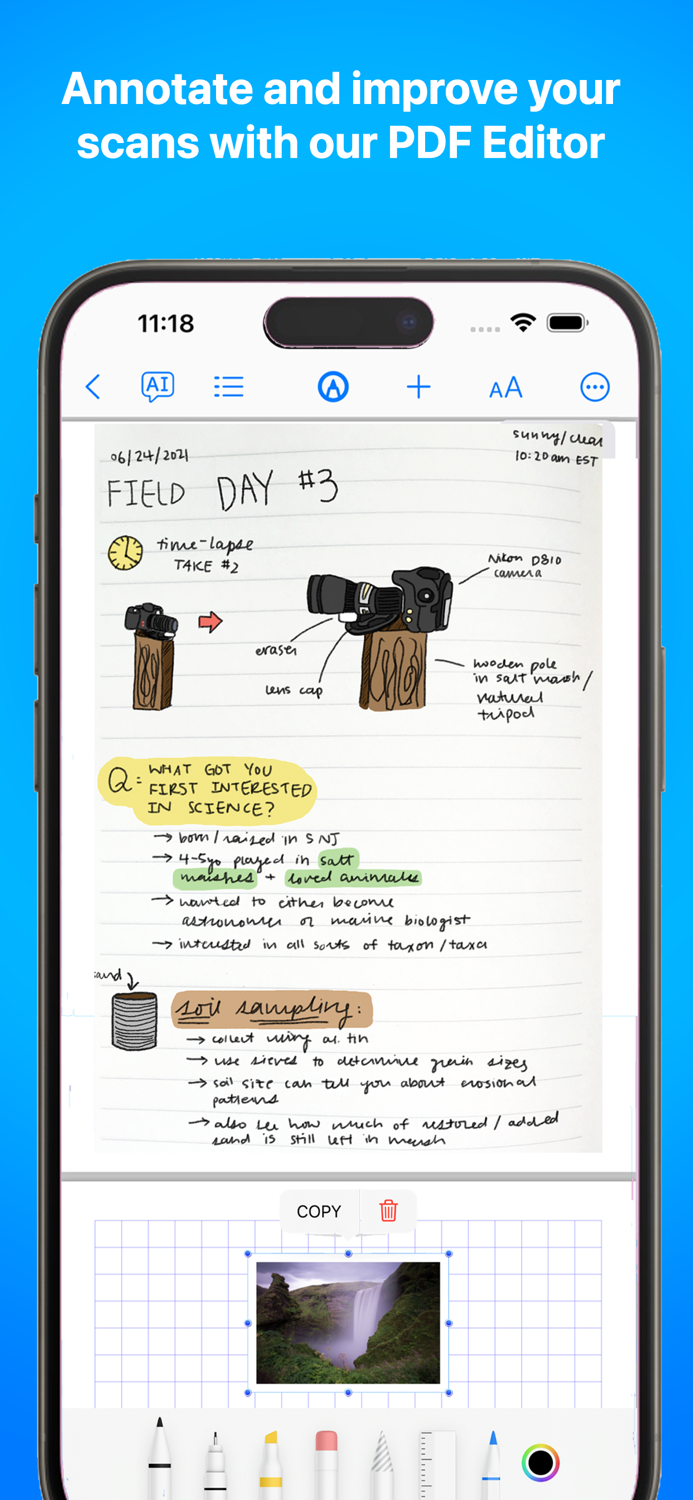 Annotate and improve your
scans with our PDF Editor
11:18
AI
AA
06/24/2021
sunny/clear
10:20am EST
FIELD DAY #3
time-lapse
TAKE #2
Nikon D810
camera
eraser
lens cap
wooden pole
in salt marsh/
natural
tripod
Q: WHAT GOT YOU
FIRST INTERESTED
IN SCIENCE?
→ born/raised in S NJ
→ 4-5yo played in salt
marshes + loved animals
→ wanted to either become
astronomer or marine biologist
→ interested in all sorts of taxon/taxa
sand
soil sampling:
→ collect using al. tin
→ use sieves to determine grain sizes
→ soil site can tell you about erosional
patterns
→ also see how much of restored/added
sand is still left in marsh
COPY